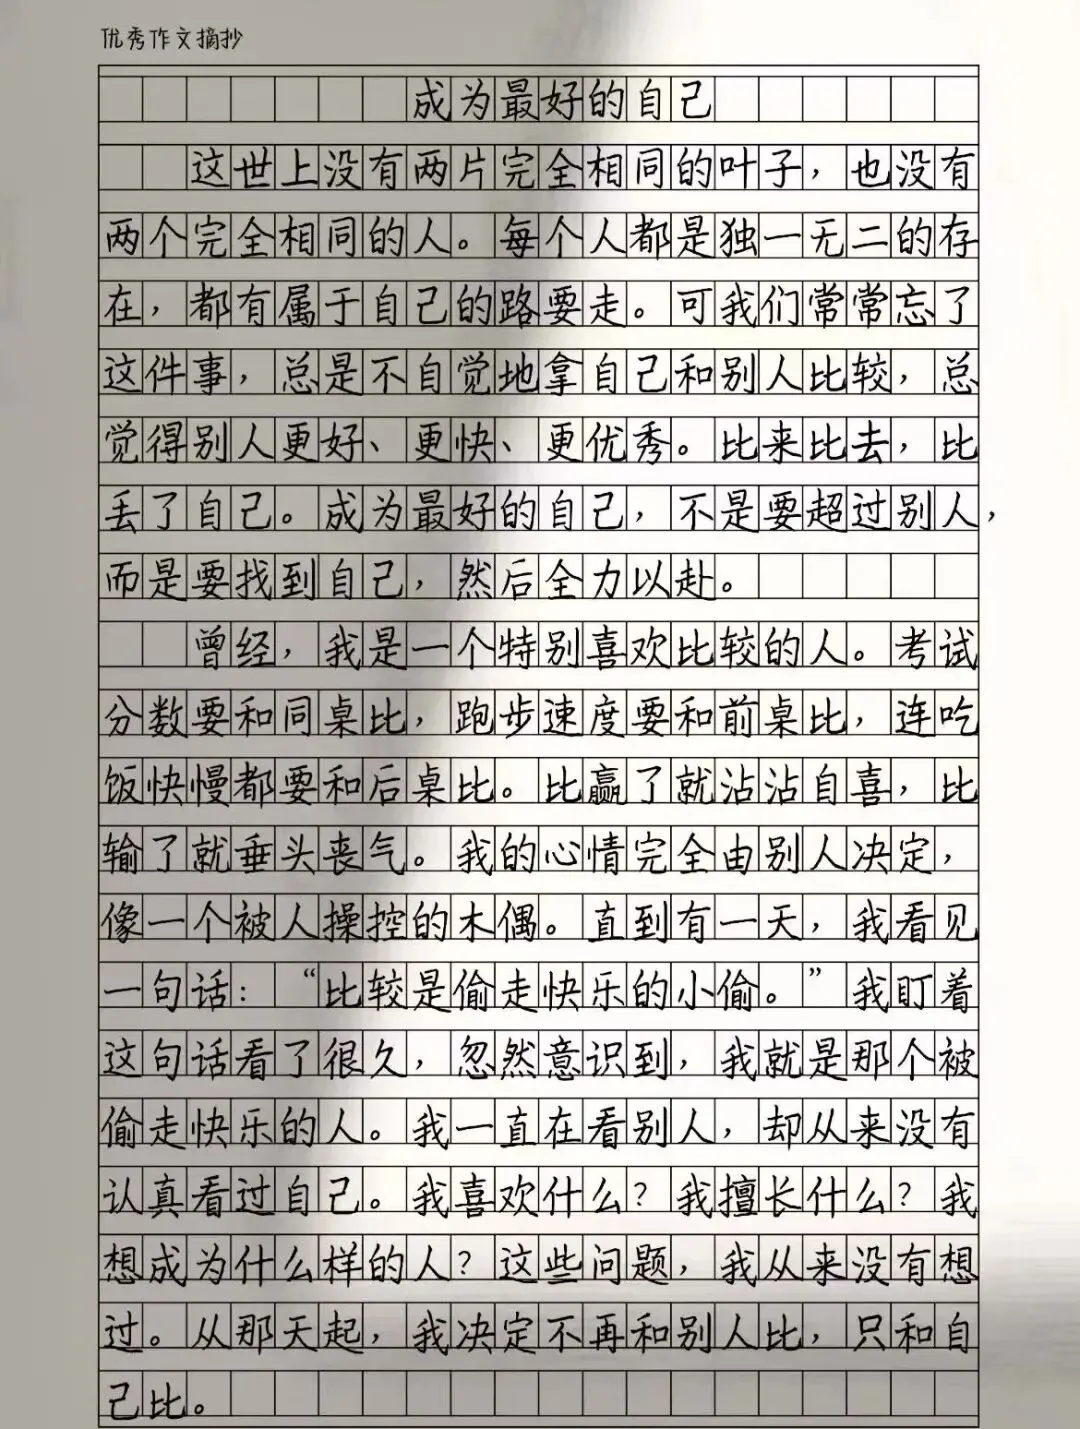 优秀作文摘抄
成为最好的自己
这世上没有两片完全相同的叶子，也没有
两个完全相同的人。每个人都是独一无二的存
在，都有属于自己的路要走。可我们常常忘了
这件事，总是不自觉地拿自己和别人比较，总
觉得别人更好、更快、更优秀。比来比去，比
丢了自己。成为最好的自己，不是要超过别人，
而是要找到自己，然后全力以赴。
曾经，我是一个特别喜欢比较的人。考试
分数要和同桌比，跑步速度要和前桌比，连吃
饭快慢都要和后桌比。比赢了就沾沾自喜，比
输了就垂头丧气。我的心情完全由别人决定，
像一个被人操控的木偶。直到有一天，我看见
一句话：“比较是偷走快乐的小偷。”我盯着
这句话看了很久，忽然意识到，我就是那个被
偷走快乐的人。我一直在看别人，却从来没有
认真看过自己。我喜欢什么？我擅长什么？我
想成为什么样的人？这些问题，我从来没有想
过。从那天起，我决定不再和别人比，只和自
己比。